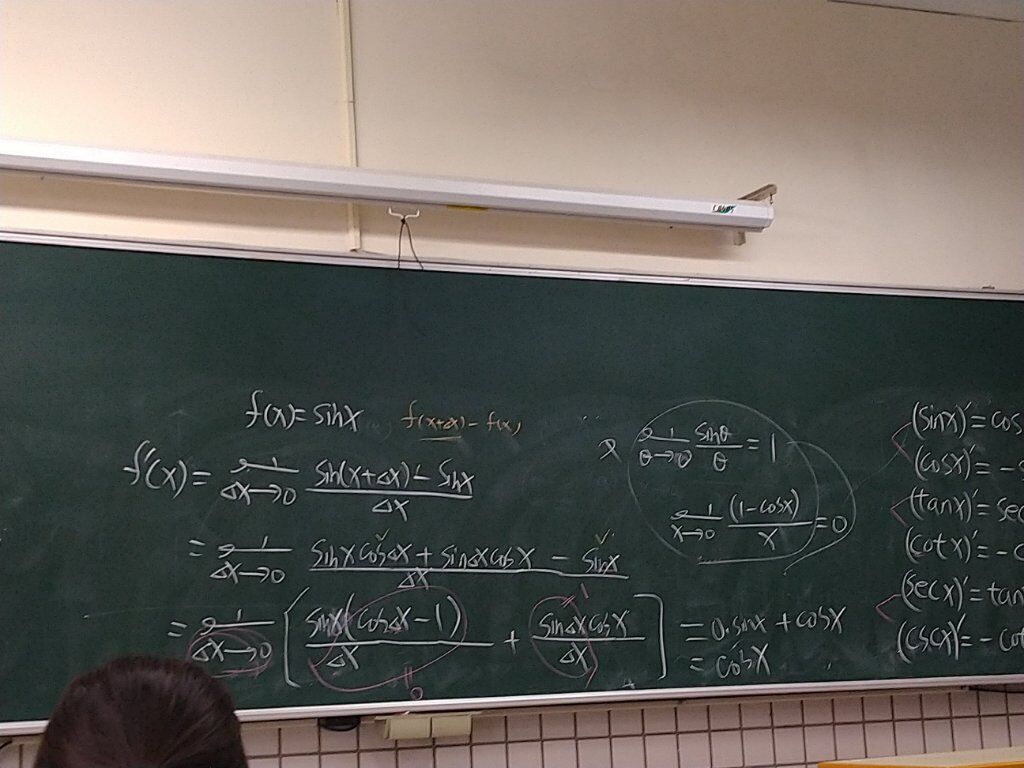 f(x)=sinx f(x+Δx)-f(x)
f'(x)= l Δx→0 sin(x+Δx)-sinx / Δx
= l Δx→0 sinx cosΔx + sinΔx cosx - sinx / Δx
= l Δx→0 [ sinx(cosΔx-1) / Δx + sinΔx cosx / Δx ] = 0·sinx + cosx
0 1
= cosx
l θ→0 sinθ / θ = 1
l x→0 (1-cosx) / x = 0
(sinx)'= cos
(cosx)'= -
(tanx)'= sec
(cotx)'= -c
(secx)'= tan
(cscx)'= -cot